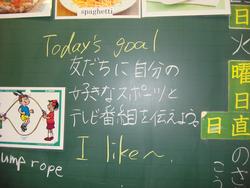 spaghetti
Today's goal
友だちに自分の
好きなスポーツと
テレビ番組を伝えよう。
I like~.
jump rope
日
火
曜
日
日直